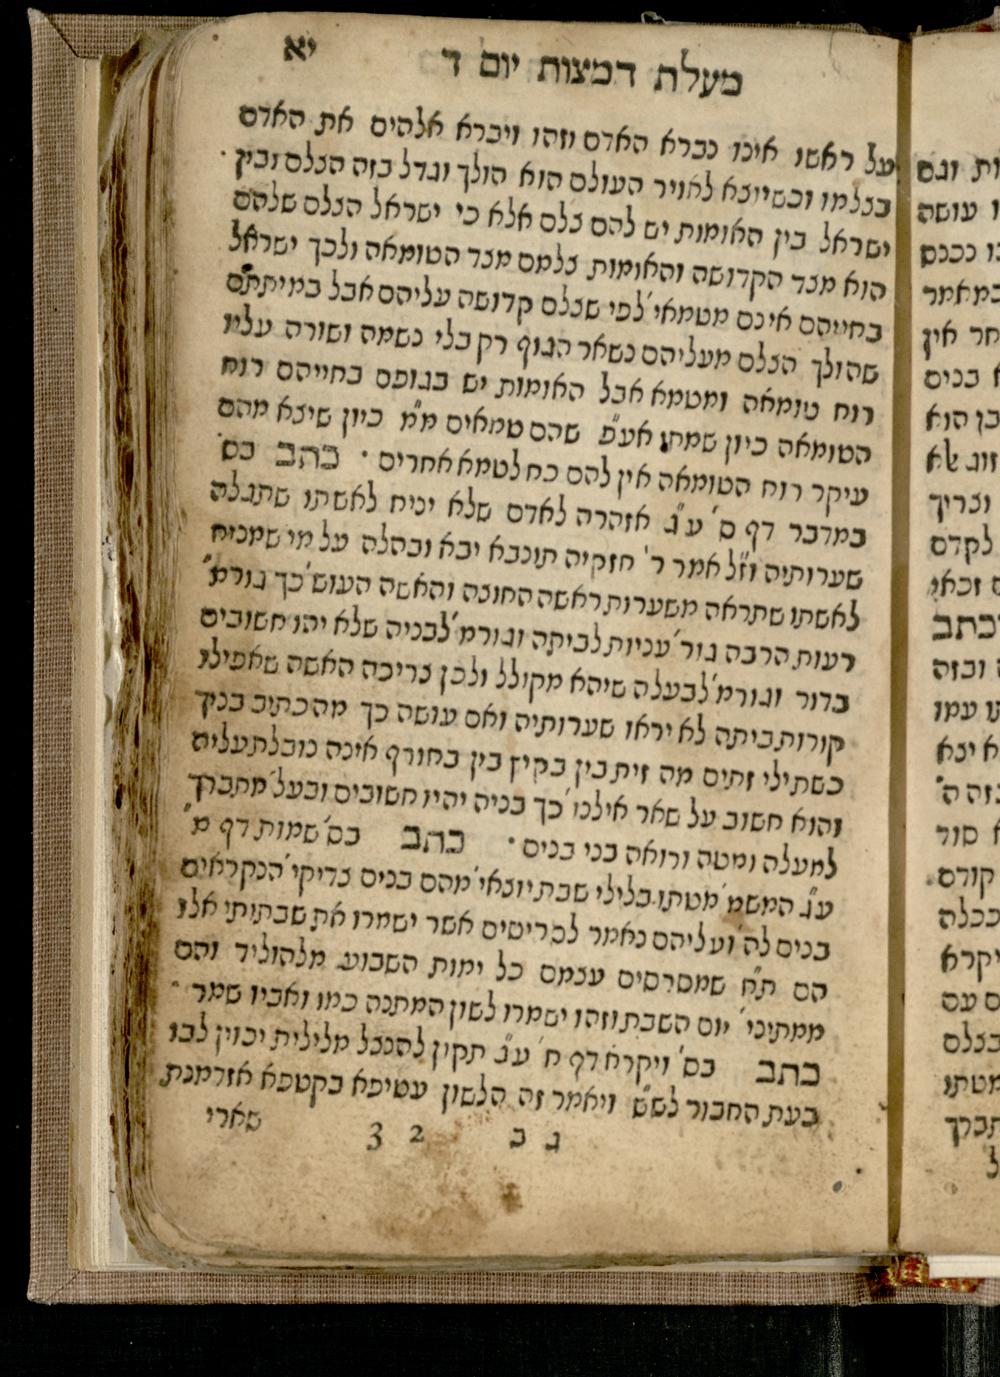 מעלת דמצות יום ד יא
על ראשו אינו נברא האדם וזהו ויברא אלהים את האדם
בצלמו וכשיוצא לאויר העולם הוא הולך וגדל בזה הצלם ובין
ישראל בין האומות יש להם צלם אלא כי ישראל הצלם שלהם
הוא מצד הקדושה והאומות צלמם מצד הטומאה ולכך ישראל
בחייהם אינם מטמאי' לפי שצלם קדושה עליהם אבל במיתתם
שהולך הצלם מעליהם נשאר הגוף רק בלי נשמה ושורה עליו
רוח טומאה ומטמא אבל האומות יש בגופם בחייהם רוח
הטומאה כיון שמתו אע"פ שהם טמאים מ"מ כיון שיצא מהם
עיקר רוח הטומאה אין להם כח לטמא אחרים · כתב בס'
במדבר דף ס' ע"ג אזהרה לאדם שלא יניח לאשתו שתגלה
שערותיה וז"ל אמר ר' חזקיה תונבא יבא ובהלה על מי שמניח
לאשתו שתראה משערות ראשה החוצה והאשה העוש' כך גורמ'
רעות הרבה גור' עניות לביתה וגורמ' לבניה שלא יהו חשובים
בדור וגורמ' לבעלה שיהא מקולל ולכן צריכה האשה שאפילו
קורות ביתה לא יראו שערותיה ואם עושה כך מהכתיב בניך
כשתילי זתים מה זית בין בקיץ בין בחורף אינה נובלת עליה
והוא חשוב על שאר אילנו' כך בניה יהיו חשובים ובעל' מתברך
למעלה ומטה ורואה בני בנים · כתב בס' שמות דף מ'
ע"ג המשמ' מטתו בלילי שבת יוצאי' מהם בנים צדיקי' הנקראים
בנים לה' ועליהם נאמר לסריסים אשר ישמרו את שבתותי אלו
הם ת"ח שמסרסים עצמם כל ימות השבוע מלהוליד והם
ממתיני' יום השבת וזהו ישמרו לשון המתנה כמו ואביו שמר ·
כתב בס' ויקרא דף ח' ע"ג תקון להנצל מלילית יכוין לבו
בעת החבור לש"ש ויאמר זה הלשון עטיפא בקטפא אזדמנת
ג ב 2 3 שארי